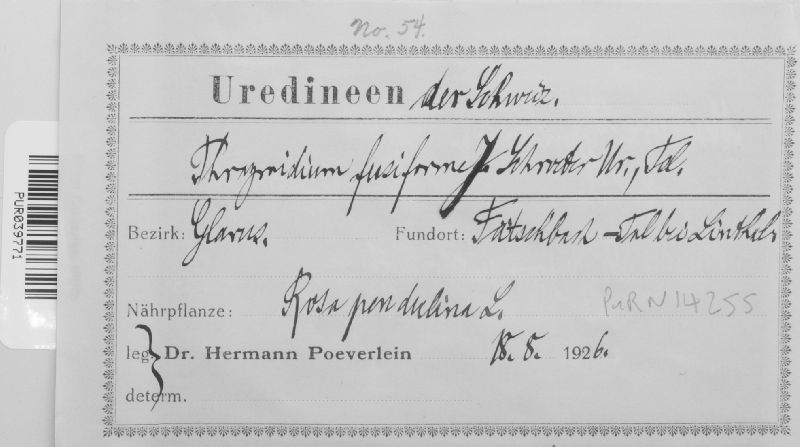 No. 54.
Uredineen der Schweiz.
Phragmidium fusiforme J. Schroeter Ur., Tel.
Bezirk: Glarus. Fundort: Fätschbach-Tal bei Linthal
Nährpflanze: Rosa pendulina L.
PURN14255
leg. Dr. Hermann Poeverlein 18. 8. 1926.
determ.
PUR039771